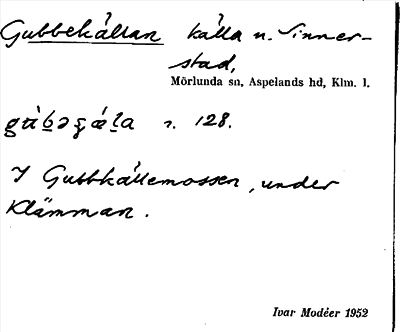 Gubbekällan källa n. Sinner-
stad,
Mörlunda sn, Aspelands hd, Klm. l.
128.
I Gubbkällemossen, under
Klämman.
Ivar Modéer 1952